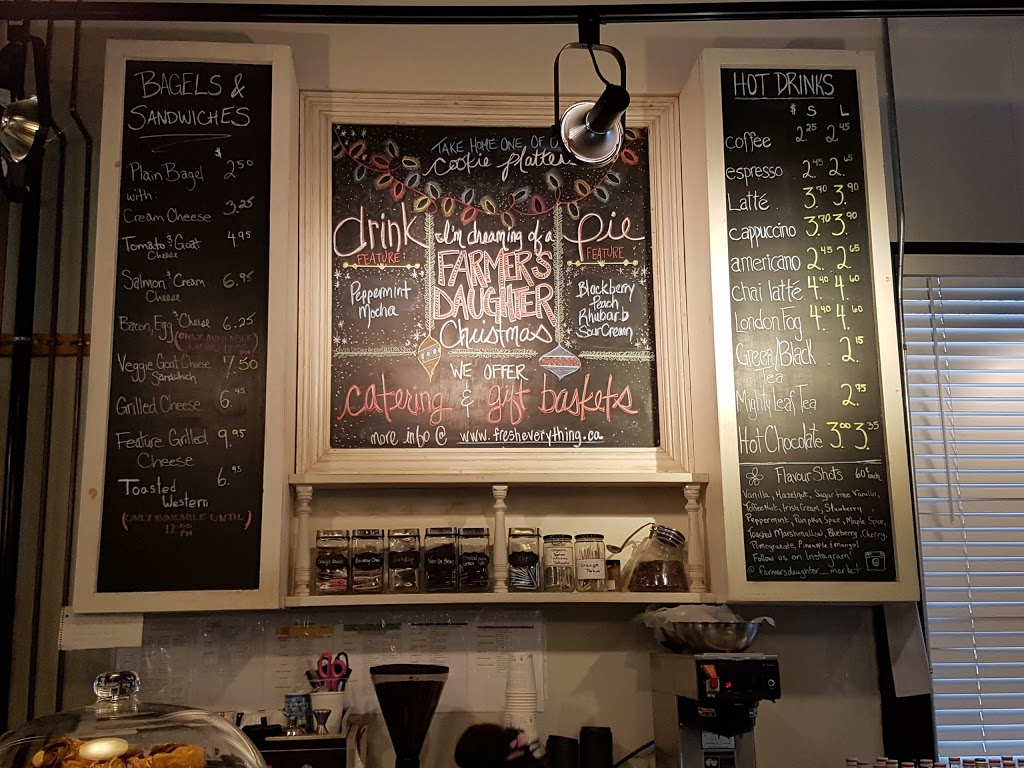 BAGELS &
SANDWICHES
$
Plain Bagel 2.50
with:
Cream Cheese 3.25
Tomato & Goat 4.95
Cheese
Salmon & Cream 6.95
Cheese
Bacon, Egg & Cheese 6.25
(ONLY AVAILABLE
Veggie Goat Cheese 7.50
Sandwich
Grilled Cheese 6.95
Feature Grilled 9.95
Cheese
Toasted 6.95
Western
(ONLY AVAILABLE UNTIL)
12:00
PM
TAKE HOME ONE OF
Cookie Platter
drink
FEATURE:
Peppermint
Mocha
I'm dreaming of a
FARMER'S
DAUGHTER
Christmas
pie
FEATURE:
Blackberry
Peach
Rhubarb
Sour Cream
WE OFFER
catering & gift baskets
more info @ www.fresheverything.ca
HOT DRINKS
$ S L
coffee 2.25 2.45
espresso 2.45 2.65
Latté 3.70 3.90
cappuccino 3.70 3.90
americano 2.45 2.65
chai latté 4.40 4.60
London Fog 4.40 4.60
Green/Black 2.15
Tea
Mighty Leaf Tea 2.75
Hot Chocolate 3.00 3.35
Flavour Shots 60¢ each
Vanilla, Hazelnut, Sugar free Vanilla,
Toffee Nut, Irish Cream, Strawberry,
Peppermint, Pumpkin Spice, Maple Spice,
Toasted Marshmallow, Blueberry, Cherry,
Pomegranate, Pineapple & mango!
Follow us on Instagram!
@farmersdaughter_market